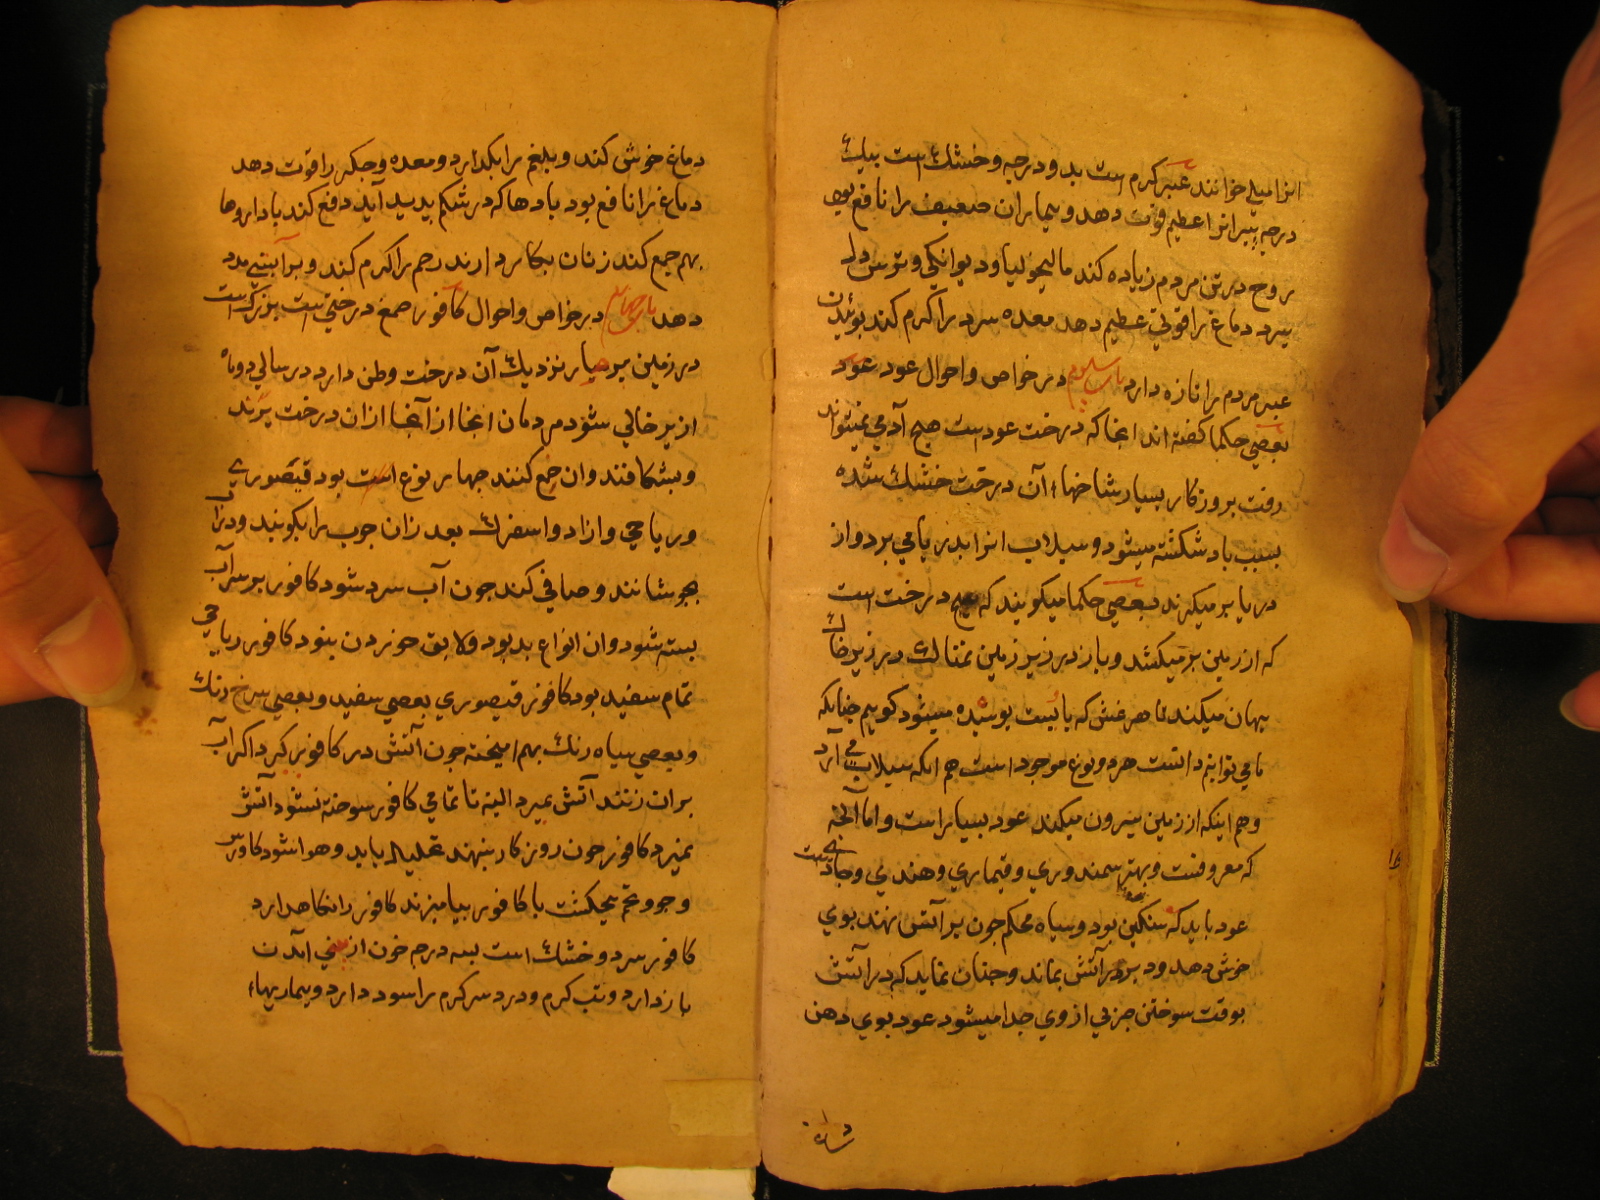 انرا میلی خوانند عنبر کرم است بدو درجه و خشك است بیك
درجه پیرانرا عظیم قوت دهد و بیماران ضعیف را نافع بود
روح در تن مردم زیاده کند مالیخولیا و دیوانکی و ترس دل
ببرد دماغ را قوتی عظیم دهد معده سرد را کرم کند بوئیدن
عنبر مردم را تازه دارد باب سیوم در خواص و احوال عود عود
بعضی حکما کفته اند انجا که درخت عود است هیچ آدمی نمیتواند
رفت بروزکار بسیار شاخهاء آن درخت خشك شده
بسبب باد شکسته میشود و سیلاب انرا بدریا می برد و از
دریا بر میکیرند بعضی حکما میکویند که بیخ درخت است
که از زمین بر میکشند و باز در زیر زمین نمناك در زیر خاك
پنهان میکنند تا هر غش که با نیست پوسیده میشود کوییم چنانکه
ما می توانیم دانست هر دو نوع موجود است هم انکه سیلاب می آرد
و هم اینکه از زمین بیرون میکنند عود بسیار است و اما آنچه
که معروفست و بهتر سمندوری و قیماری و هندی و
عود باید که سنکین بود و سیاه محکم چون بر آتش نهند بوی
خوش دهد و دیر در آتش بماند و چنان نماید که در آتش
بوقت سوختن چیزی از وی جدا میشود عود بوی دهن
دماغ خوش کند و بلغم را بکدازد و معده و جکر را قوت دهد
دماغ را نافع بود بادها که در شکم پدید آید دفع کند با داروها
بهم جمع کند زنان بکار دارند رحم را کرم کند و بر آبستنی مدد
دهد باب چهارم در خواص و احوال کافور صمغ درختی است بزرك است
در زمین نزدیك آن درخت وطن دارد در سالی دو ماه
از یر خالی شود مردمان انجا از آنجا ازان درخت برند
و بشکافند وان جمع کنند چهار نوع است بود قیصوری
و ریاحی و ازاد و اسفرك بعد زان چوب را بکویند و در آب
بجوشانند و صافی کند چون آب سرد شود کافور بر سر آب
بسته شود وان انواع بد بود و لایق خوردن بنود کافور ریاحی
تمام سفید بود کافور قیصوری بعضی سفید و بعضی سرخ رنك
و بعضی سیاه رنك بهم امیخته چون آتش در کافور کیرد اکر آب
بران زنند آتش نمیرد البته تا تمامی کافور سوخته نشود آتش
نمیرد کافور چون روزکار بنهند تحلیل یابد و هوا شود کافور
و جو و تخم بیا کافور بیامیزند کافور را نکاهدارد
کافور سرد و خشك است بسه درجه خون از بینی آمدن
باز دارد و تب کرم و درد سر کرم را سود دارد و بیماریهاء